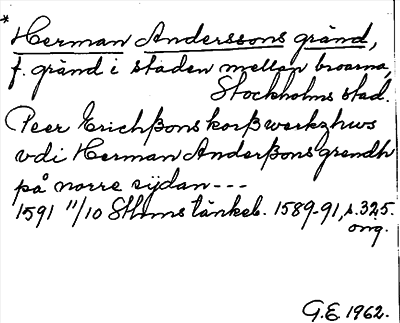 * Herman Anderssons gränd,
f. gränd i staden mellan broarna,
Stockholms stad.
Peer Erichßons korßwerkzhws
vdi Herman Anderßons grendh
på norre sijdan---
1591 11/10 Sthms tänkeb. 1589-91, s. 325.
orig.
G.E. 1962.